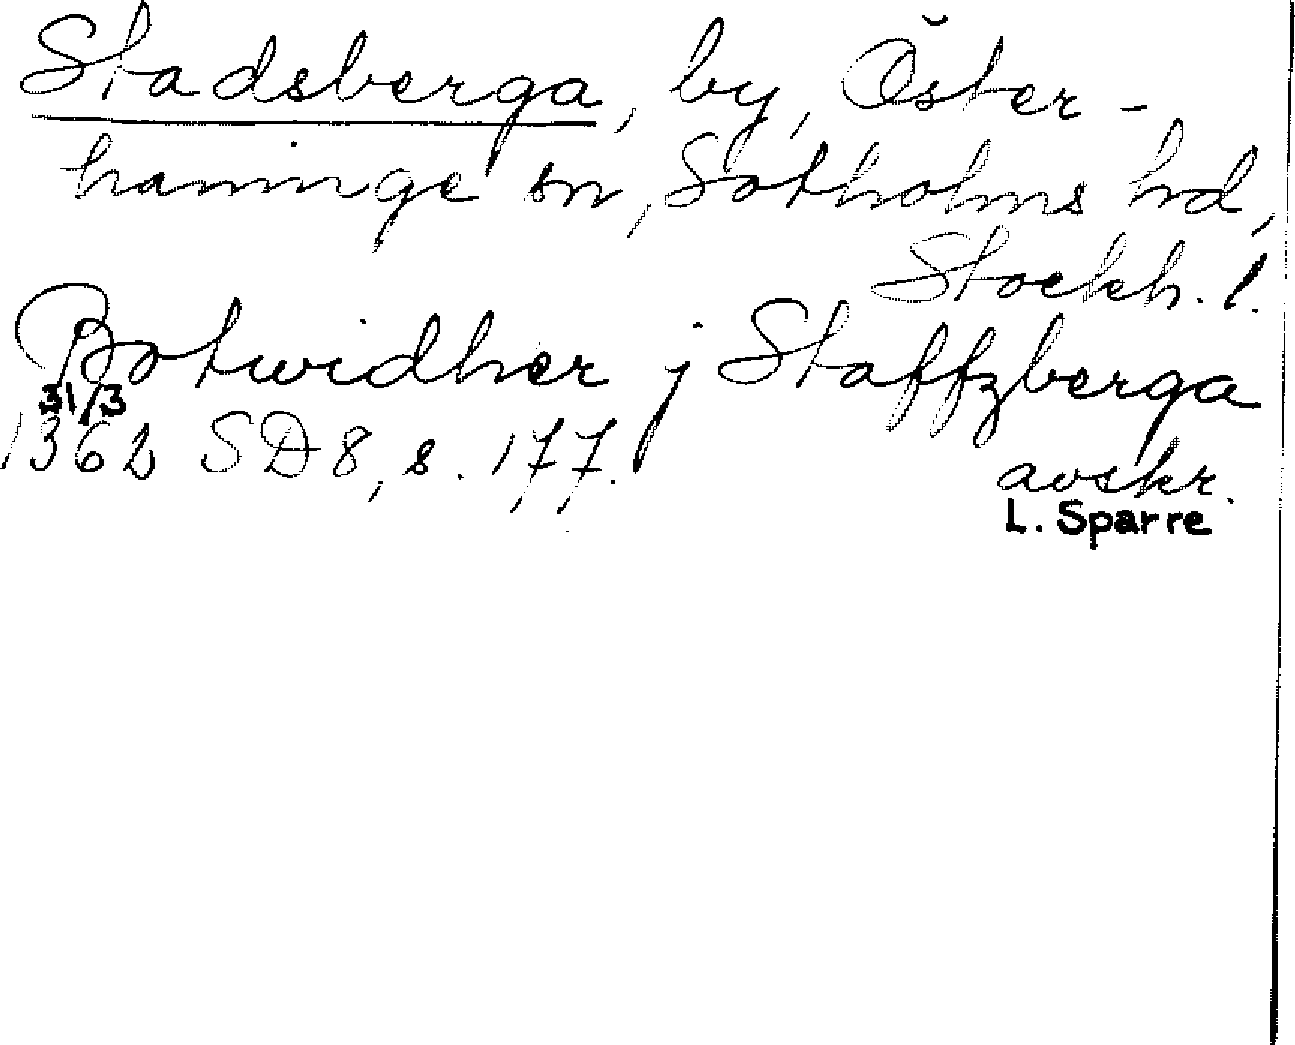 Stadsberga, by, Öster-
haninge sn, Sotholms hd,
Stockh. l.
Botwidher j Staffzberga
31/3
1362 SD 8, s. 177.
avskr.
L. Sparre